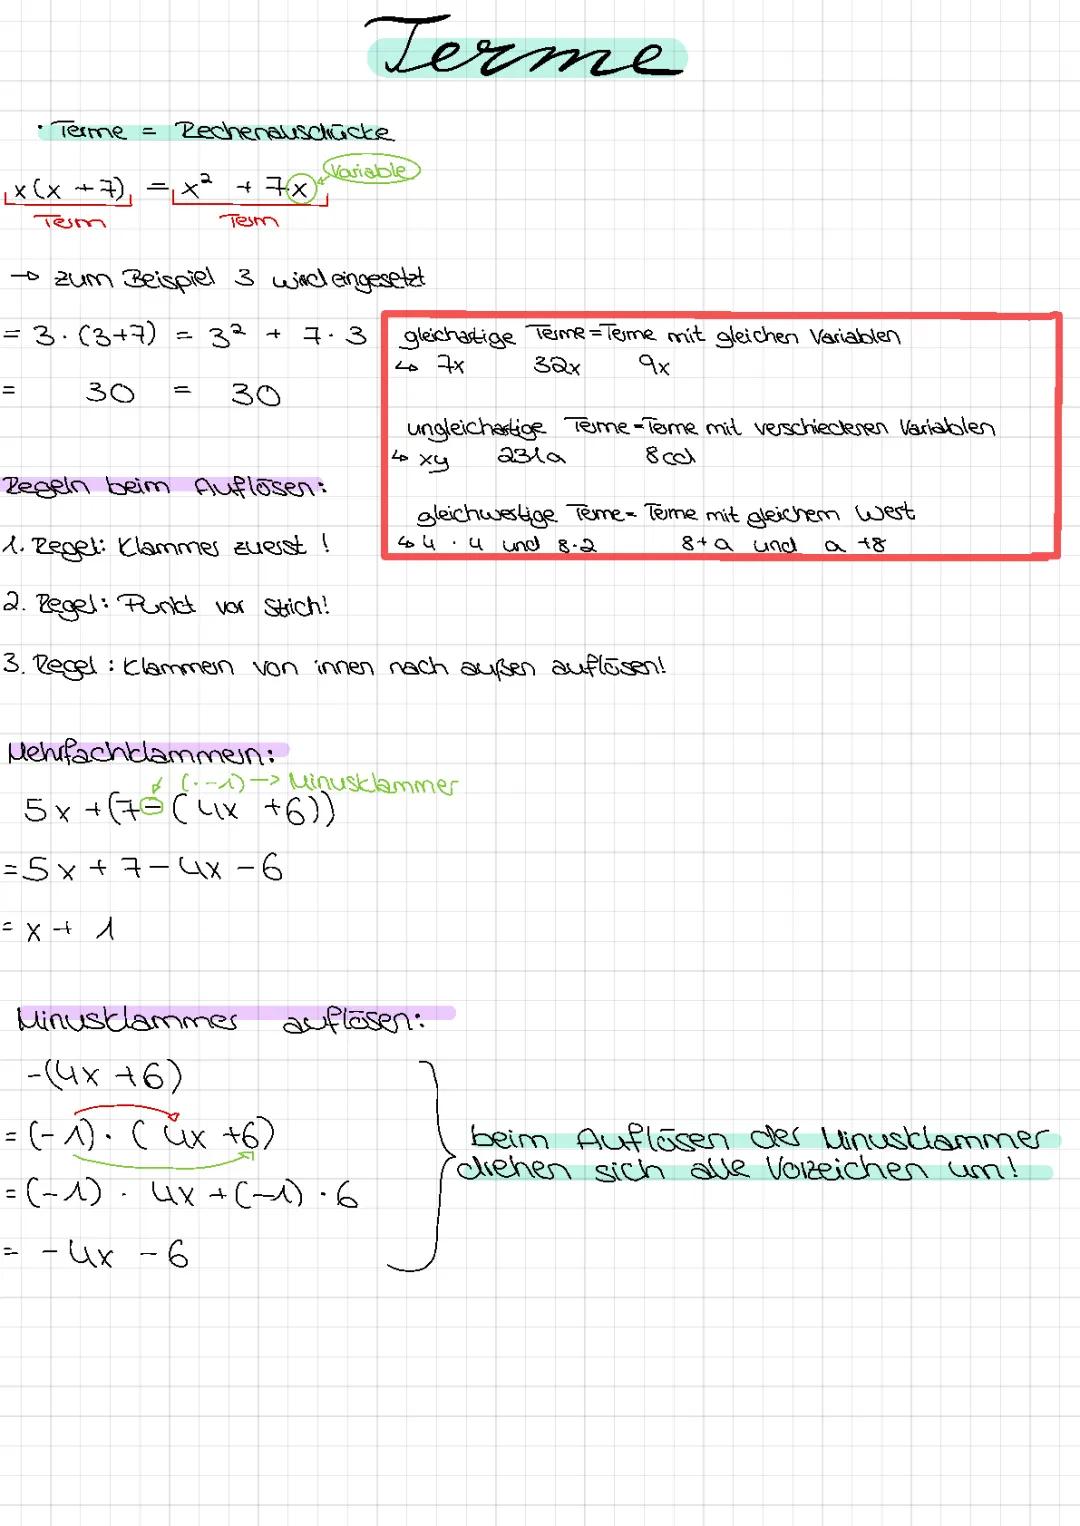 Terme
· Terme = Rechenausdrücke
Variable
x(x +7) = x² + 7x
Term Term
→ zum Beispiel 3 wird eingesetzt
= 3 · (3+7) = 3² + 7 · 3
= 30 = 30
gleichartige Terme = Terme mit gleichen Variablen
↳ 7x 32x 9x
ungleichartige Terme = Terme mit verschiedenen Variablen
↳ xy 231a 8cd
gleichwertige Terme = Terme mit gleichem Wert
↳ 4 · 4 und 8·2 8+a und a +8
Regeln beim Auflösen:
1. Regel: Klammer zuerst !
2. Regel: Punkt vor Strich!
3. Regel : Klammern von innen nach außen auflösen!
Mehrfachklammern:
(·-1) → Minusklammer
5x +(7-(4x +6))
=5x + 7 - 4x - 6
= x + 1
Minusklammer auflösen:
-(4x +6)
= (-1) · (4x +6)
= (-1) · 4x + (-1) · 6
= -4x - 6
beim Auflösen der Minusklammer
drehen sich alle Vorzeichen um!